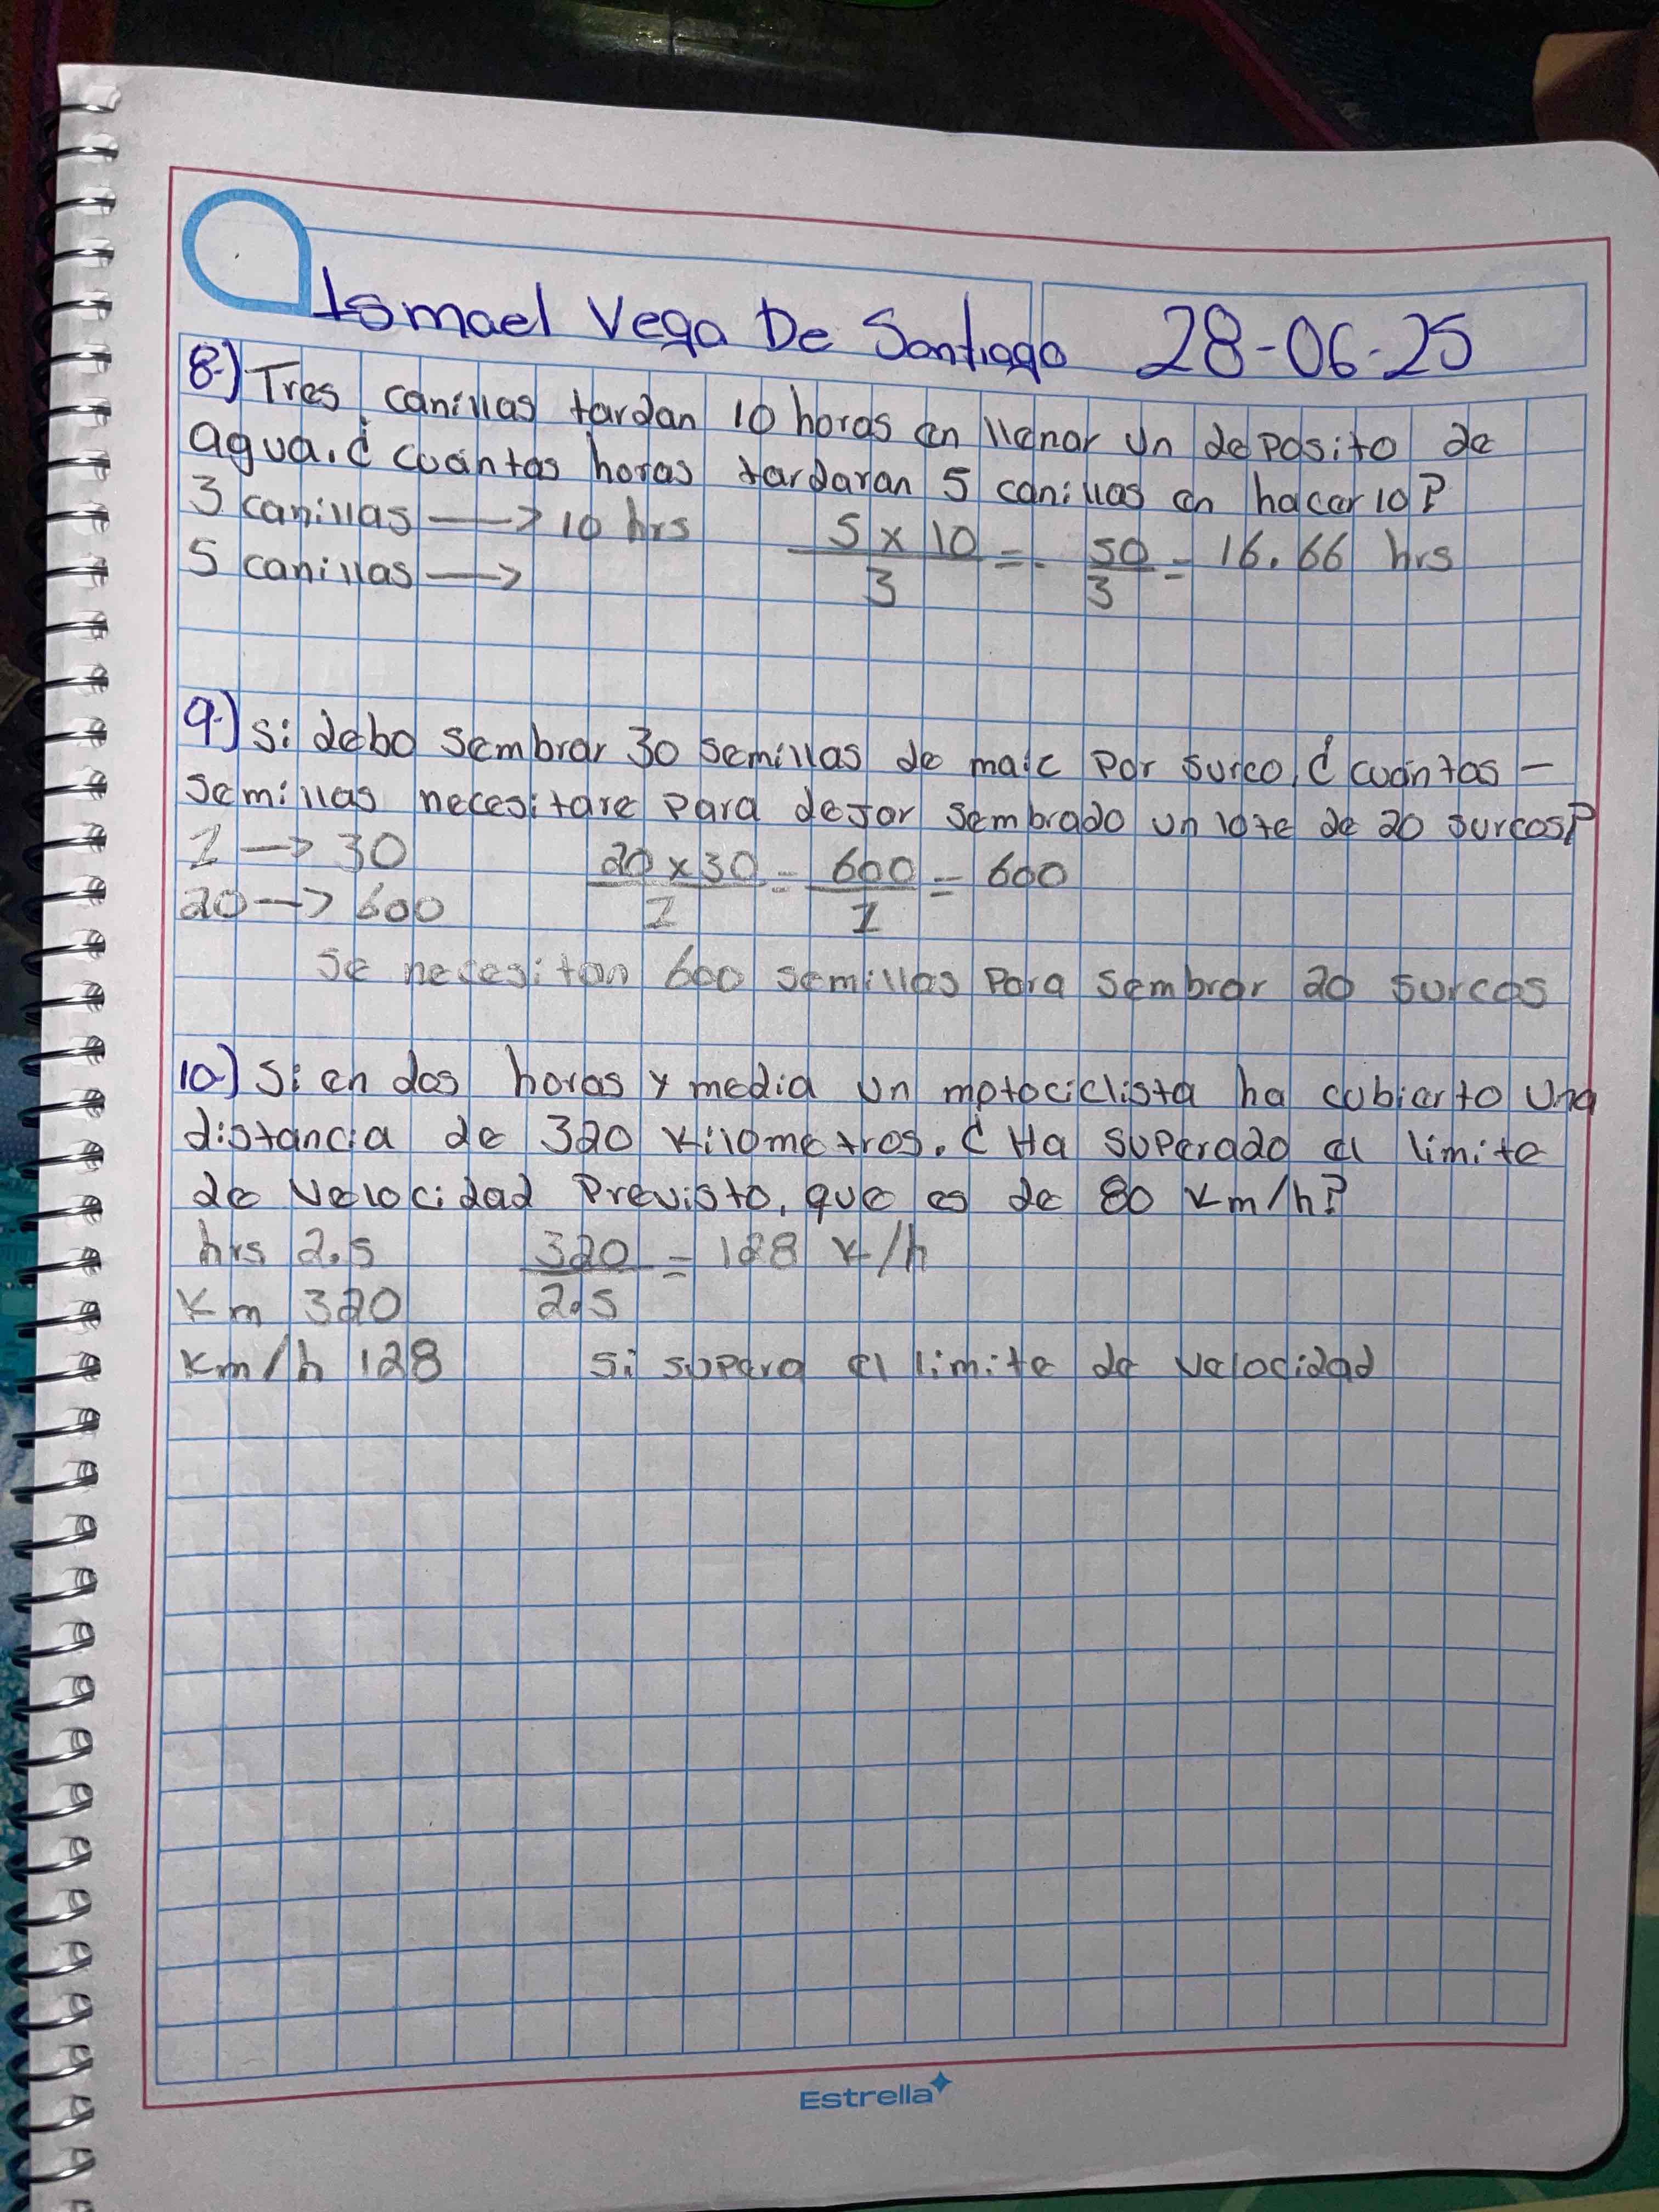 Ismael Vega De Santiago 28-06-25
8.) Tres canillas tardan 10 horas en llenar un deposito de
agua. ¿ cuántas horas tardaran 5 canillas en hacerlo?
3 canillas → 10 hrs 5 x 10 / 3 = 50 / 3 = 16.66 hrs
5 canillas →
9.) Si debo sembrar 30 semillas de maic por surco, ¿ cuántas -
semillas necesitare para dejar sembrado un lote de 20 surcos?
1 → 30 20 x 30 / 1 = 600 / 1 = 600
20 → 600
Se necesitan 600 semillas para sembrar 20 surcos
10.) Si en dos horas y media un motociclista ha cubierto una
distancia de 320 kilometros. ¿ Ha superado el limite
de velocidad Previsto, que es de 80 km/h?
hrs 2.5 320 / 2.5 = 128 k/h
Km 320
Km/h 128 Si supera el limite de velocidad
Estrella